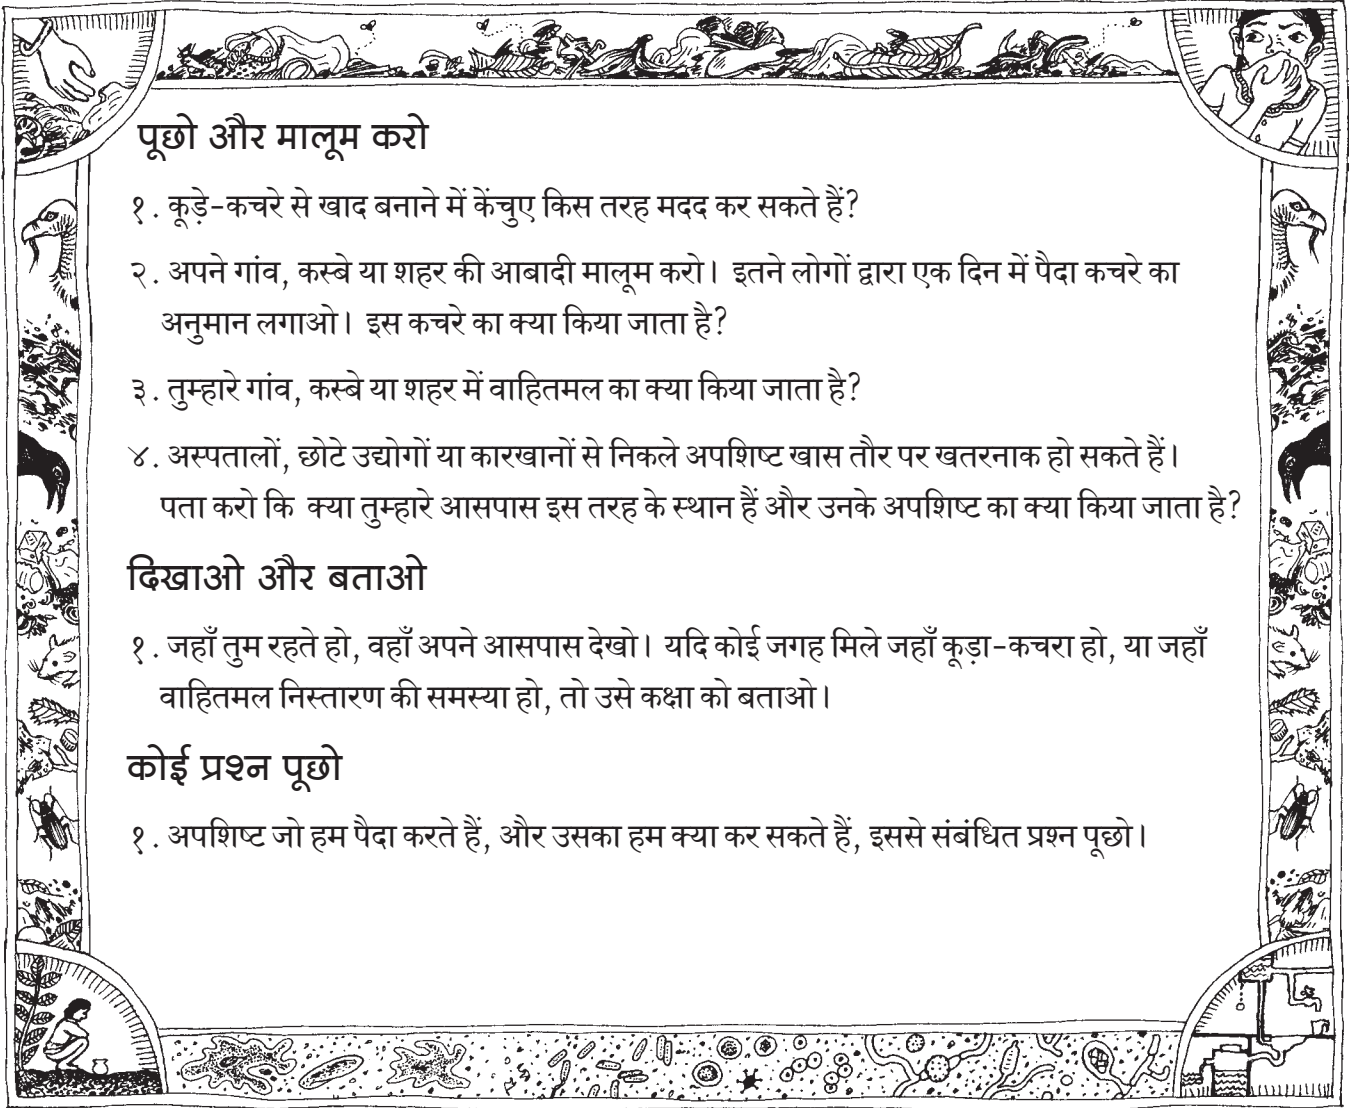 पूछो और मालूम करो
१. कूड़े-कचरे से खाद बनाने में केंचुए किस तरह मदद कर सकते हैं?
२. अपने गांव, कस्बे या शहर की आबादी मालूम करो। इतने लोगों द्वारा एक दिन में पैदा कचरे का
अनुमान लगाओ। इस कचरे का क्या किया जाता है?
३. तुम्हारे गांव, कस्बे या शहर में वाहितमल का क्या किया जाता है?
४. अस्पतालों, छोटे उद्योगों या कारखानों से निकले अपशिष्ट खास तौर पर खतरनाक हो सकते हैं।
पता करो कि क्या तुम्हारे आसपास इस तरह के स्थान हैं और उनके अपशिष्ट का क्या किया जाता है?
दिखाओ और बताओ
१. जहाँ तुम रहते हो, वहाँ अपने आसपास देखो। यदि कोई जगह मिले जहाँ कूड़ा-कचरा हो, या जहाँ
वाहितमल निस्तारण की समस्या हो, तो उसे कक्षा को बताओ।
कोई प्रश्न पूछो
१. अपशिष्ट जो हम पैदा करते हैं, और उसका हम क्या कर सकते हैं, इससे संबंधित प्रश्न पूछो।